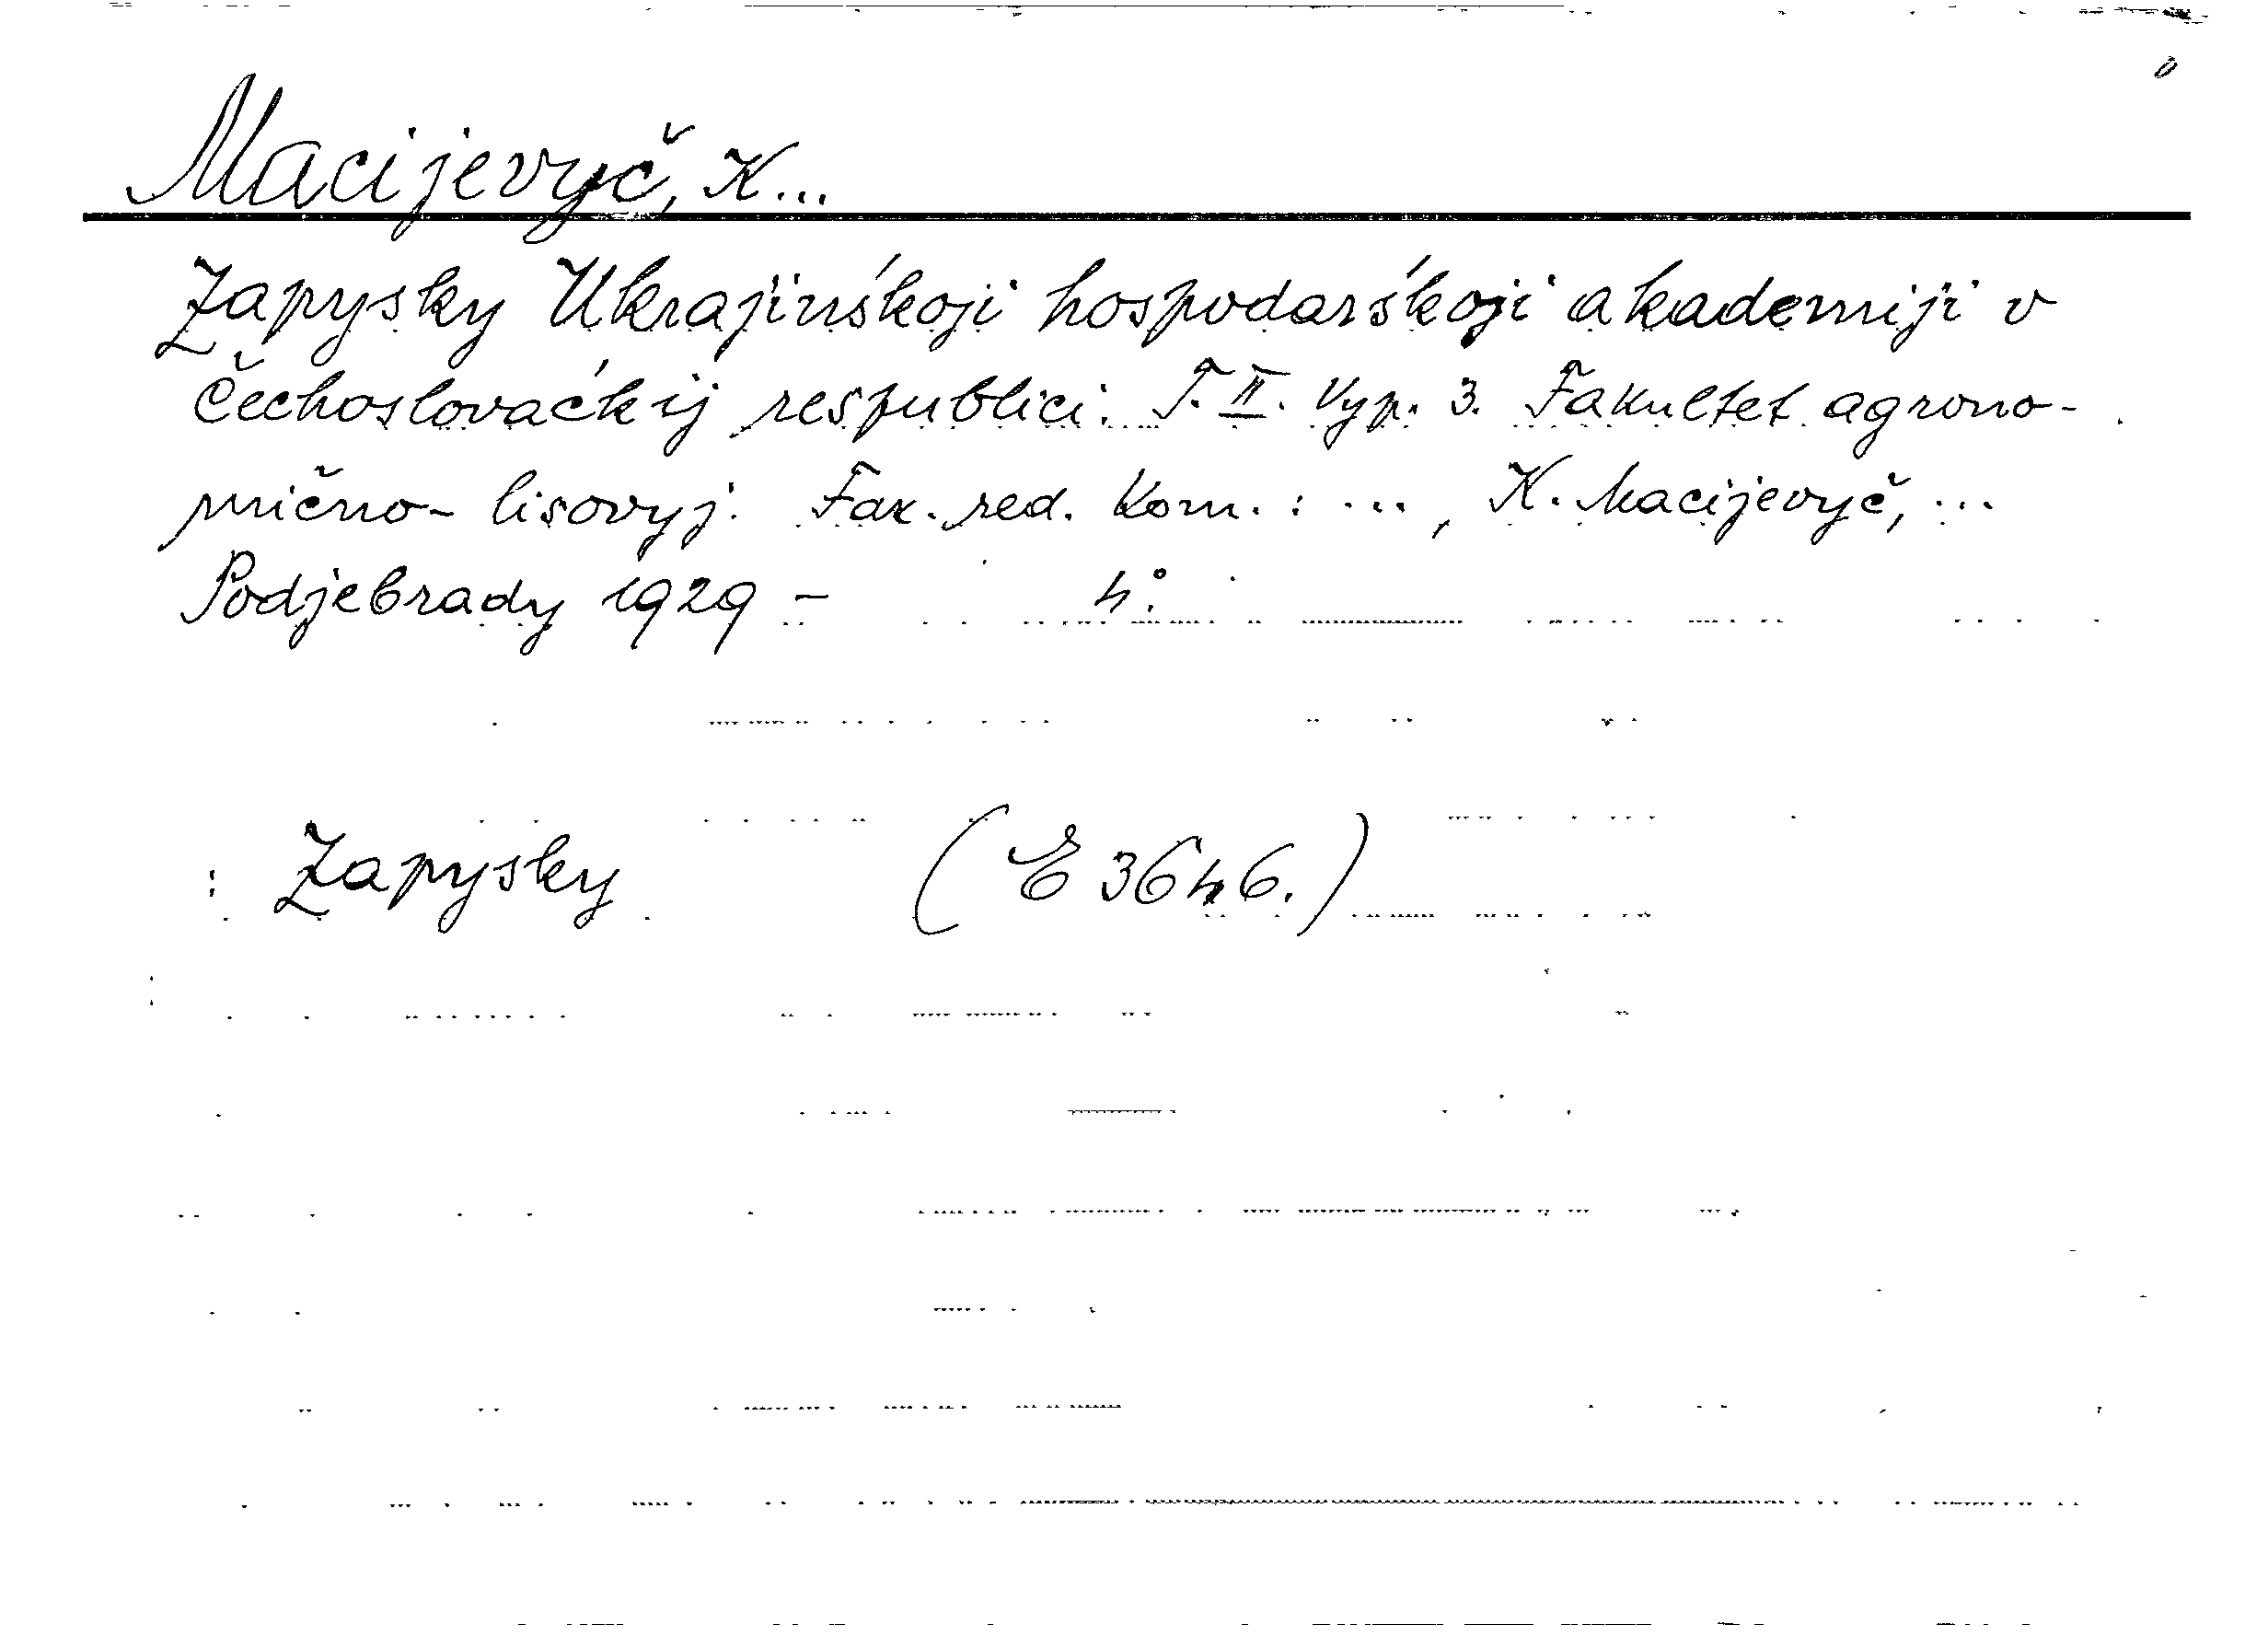 Macijevyč, K...
Zapysky Ukrajinśkoji hospodarśkoji akademiji v
Čechoslovaćkij respublici. T. II. Vyp. 3. Fakultet agrono-
mično-lisovyj. Fak. red. kom.: ..., K. Macijevyč, ...
Podjebrady 1929 – 4°.
: Zapysky (E 3646.)